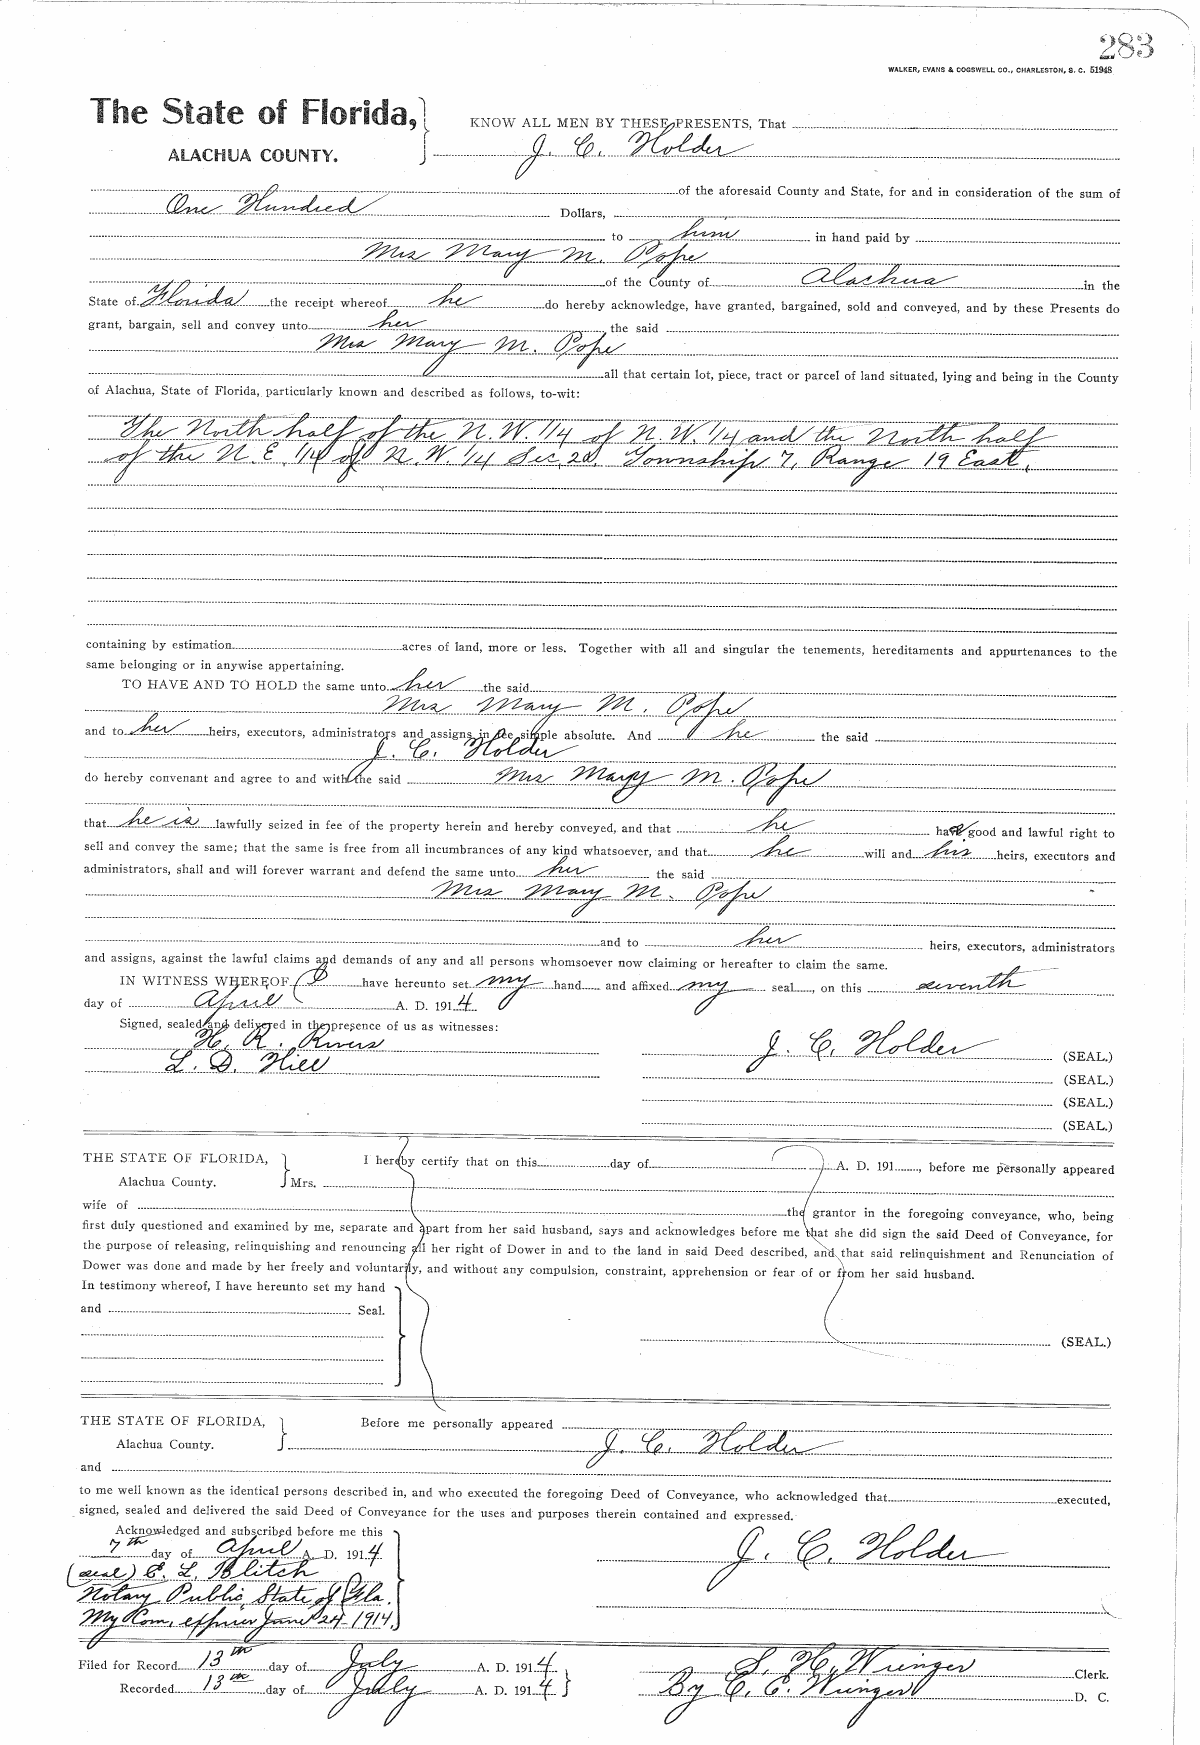 283
WALKER, EVANS & COGSWELL CO., CHARLESTON, S. C. 51948
The State of Florida,
KNOW ALL MEN BY THESE PRESENTS, That
ALACHUA COUNTY.
J. C. Holder
of the aforesaid County and State, for and in consideration of the sum of
One Hundred Dollars,
to him in hand paid by
Mrs Mary M. Pope
of the County of Alachua in the
State of Florida the receipt whereof he do hereby acknowledge, have granted, bargained, sold and conveyed, and by these Presents do
grant, bargain, sell and convey unto her the said
Mrs Mary M. Pope
all that certain lot, piece, tract or parcel of land situated, lying and being in the County
of Alachua, State of Florida, particularly known and described as follows, to-wit:
The North half of the N. W. 1/4 of N. W. 1/4 and the North half
of the N. E. 1/4 of N. W. 1/4 Sec. Township 7, Range 19 East,
containing by estimation acres of land, more or less. Together with all and singular the tenements, hereditaments and appurtenances to the
same belonging or in anywise appertaining.
TO HAVE AND TO HOLD the same unto her the said
Mrs Mary M. Pope
and to her heirs, executors, administrators and assigns in fee simple absolute. And he the said
J. C. Holder
do hereby convenant and agree to and with the said Mrs Mary M. Pope
that he is lawfully seized in fee of the property herein and hereby conveyed, and that he has good and lawful right to
sell and convey the same; that the same is free from all incumbrances of any kind whatsoever, and that he will and his heirs, executors and
administrators, shall and will forever warrant and defend the same unto her the said
Mrs Mary M. Pope
and to her heirs, executors, administrators
and assigns, against the lawful claims and demands of any and all persons whomsoever now claiming or hereafter to claim the same.
IN WITNESS WHEREOF, I have hereunto set my hand and affixed my seal, on this seventh
day of April A. D. 1914.
Signed, sealed and delivered in the presence of us as witnesses:
H. R. Rivers
J. C. Holder (SEAL.)
L. D. Hill
(SEAL.)
(SEAL.)
(SEAL.)
THE STATE OF FLORIDA,
I hereby certify that on this day of A. D. 191 , before me personally appeared
Alachua County.
Mrs.
wife of the grantor in the foregoing conveyance, who, being
first duly questioned and examined by me, separate and apart from her said husband, says and acknowledges before me that she did sign the said Deed of Conveyance, for
the purpose of releasing, relinquishing and renouncing all her right of Dower in and to the land in said Deed described, and that said relinquishment and Renunciation of
Dower was done and made by her freely and voluntarily, and without any compulsion, constraint, apprehension or fear of or from her said husband.
In testimony whereof, I have hereunto set my hand
and Seal.
(SEAL.)
THE STATE OF FLORIDA,
Before me personally appeared
Alachua County.
J. C. Holder
and
to me well known as the identical persons described in, and who executed the foregoing Deed of Conveyance, who acknowledged that executed,
signed, sealed and delivered the said Deed of Conveyance for the uses and purposes therein contained and expressed.
Acknowledged and subscribed before me this
7th day of April A. D. 1914
J. C. Holder
(seal) E. L. Blitch
Notary Public, State of Fla.
My Com, expires June 24 1914.
Filed for Record 13th day of July A. D. 1914
S. H. Wienges Clerk.
Recorded 13th day of July A. D. 1914
By E. E. Wienges D. C.